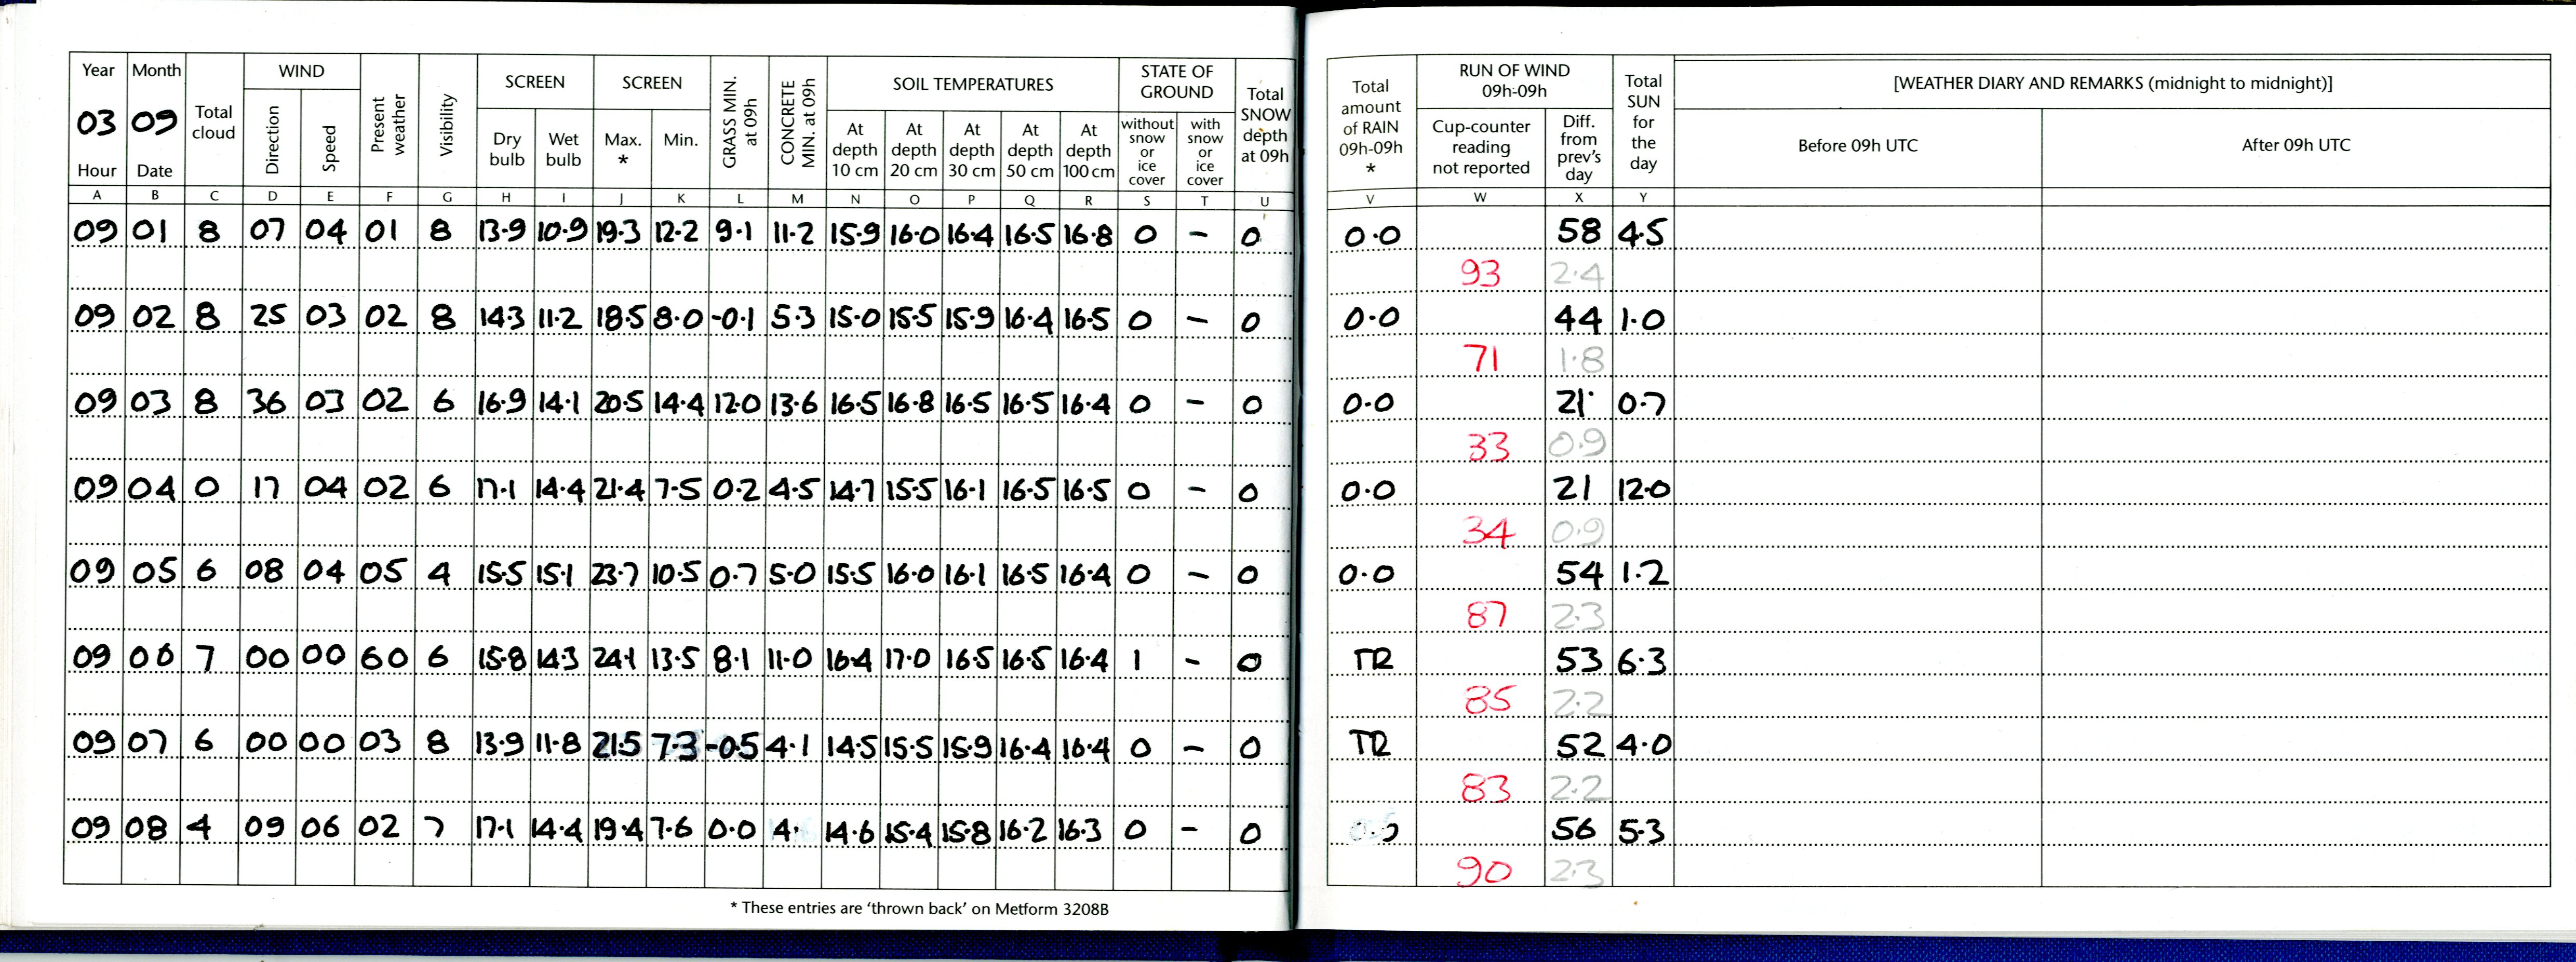 Year Month WIND SCREEN SCREEN SOIL TEMPERATURES STATE OF GROUND
03 09 Total cloud Direction Speed Present weather Visibility Dry bulb Wet bulb Max. * Min. GRASS MIN. at 09h CONCRETE MIN. at 09h At depth 10 cm At depth 20 cm At depth 30 cm At depth 50 cm At depth 100 cm without snow or ice cover with snow or ice cover Total SNOW depth at 09h
Hour Date
A B C D E F G H I J K L M N O P Q R S T U
09 01 8 07 04 01 8 13.9 10.9 19.3 12.2 9.1 11.2 15.9 16.0 16.4 16.5 16.8 0 - 0
09 02 8 25 03 02 8 14.3 11.2 18.5 8.0 -0.1 5.3 15.0 15.5 15.9 16.4 16.5 0 - 0
09 03 8 36 03 02 6 16.9 14.1 20.5 14.4 12.0 13.6 16.5 16.8 16.5 16.5 16.4 0 - 0
09 04 0 17 04 02 6 17.1 14.4 21.4 7.5 0.2 4.5 14.7 15.5 16.1 16.5 16.5 0 - 0
09 05 6 08 04 05 4 15.5 15.1 23.7 10.5 0.7 5.0 15.5 16.0 16.1 16.5 16.4 0 - 0
09 06 7 00 00 60 6 15.8 14.3 24.1 13.5 8.1 11.0 16.4 17.0 16.5 16.5 16.4 1 - 0
09 07 6 00 00 03 8 13.9 11.8 21.5 7.3 -0.5 4.1 14.5 15.5 15.9 16.4 16.4 0 - 0
09 08 4 09 06 02 7 17.1 14.4 19.4 7.6 0.0 14.6 15.4 15.8 16.2 16.3 0 - 0
* These entries are 'thrown back' on Metform 3208B
Total amount of RAIN 09h-09h * RUN OF WIND 09h-09h Total SUN for the day [WEATHER DIARY AND REMARKS (midnight to midnight)]
Cup-counter reading not reported Diff. from prev's day Before 09h UTC After 09h UTC
V W X Y
0.0 58 4.5
93 2.4
0.0 44 1.0
71 1.8
0.0 21 0.7
33 0.9
0.0 21 12.0
34 0.9
0.0 54 1.2
87 2.3
TR 53 6.3
85 2.2
TR 52 4.0
83 2.2
56 5.3
90 2.3